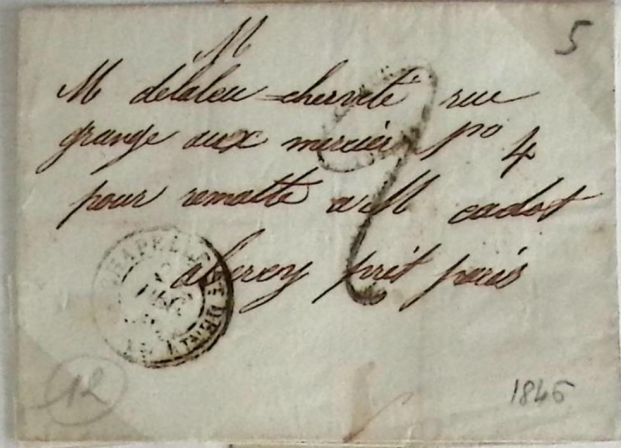 5
M
M delaleu chervité rue
grange aux mercier No 4
pour remattre a M cadot
a bercy prèt paris
2
CHAPELLE ST DENIS
12
1846